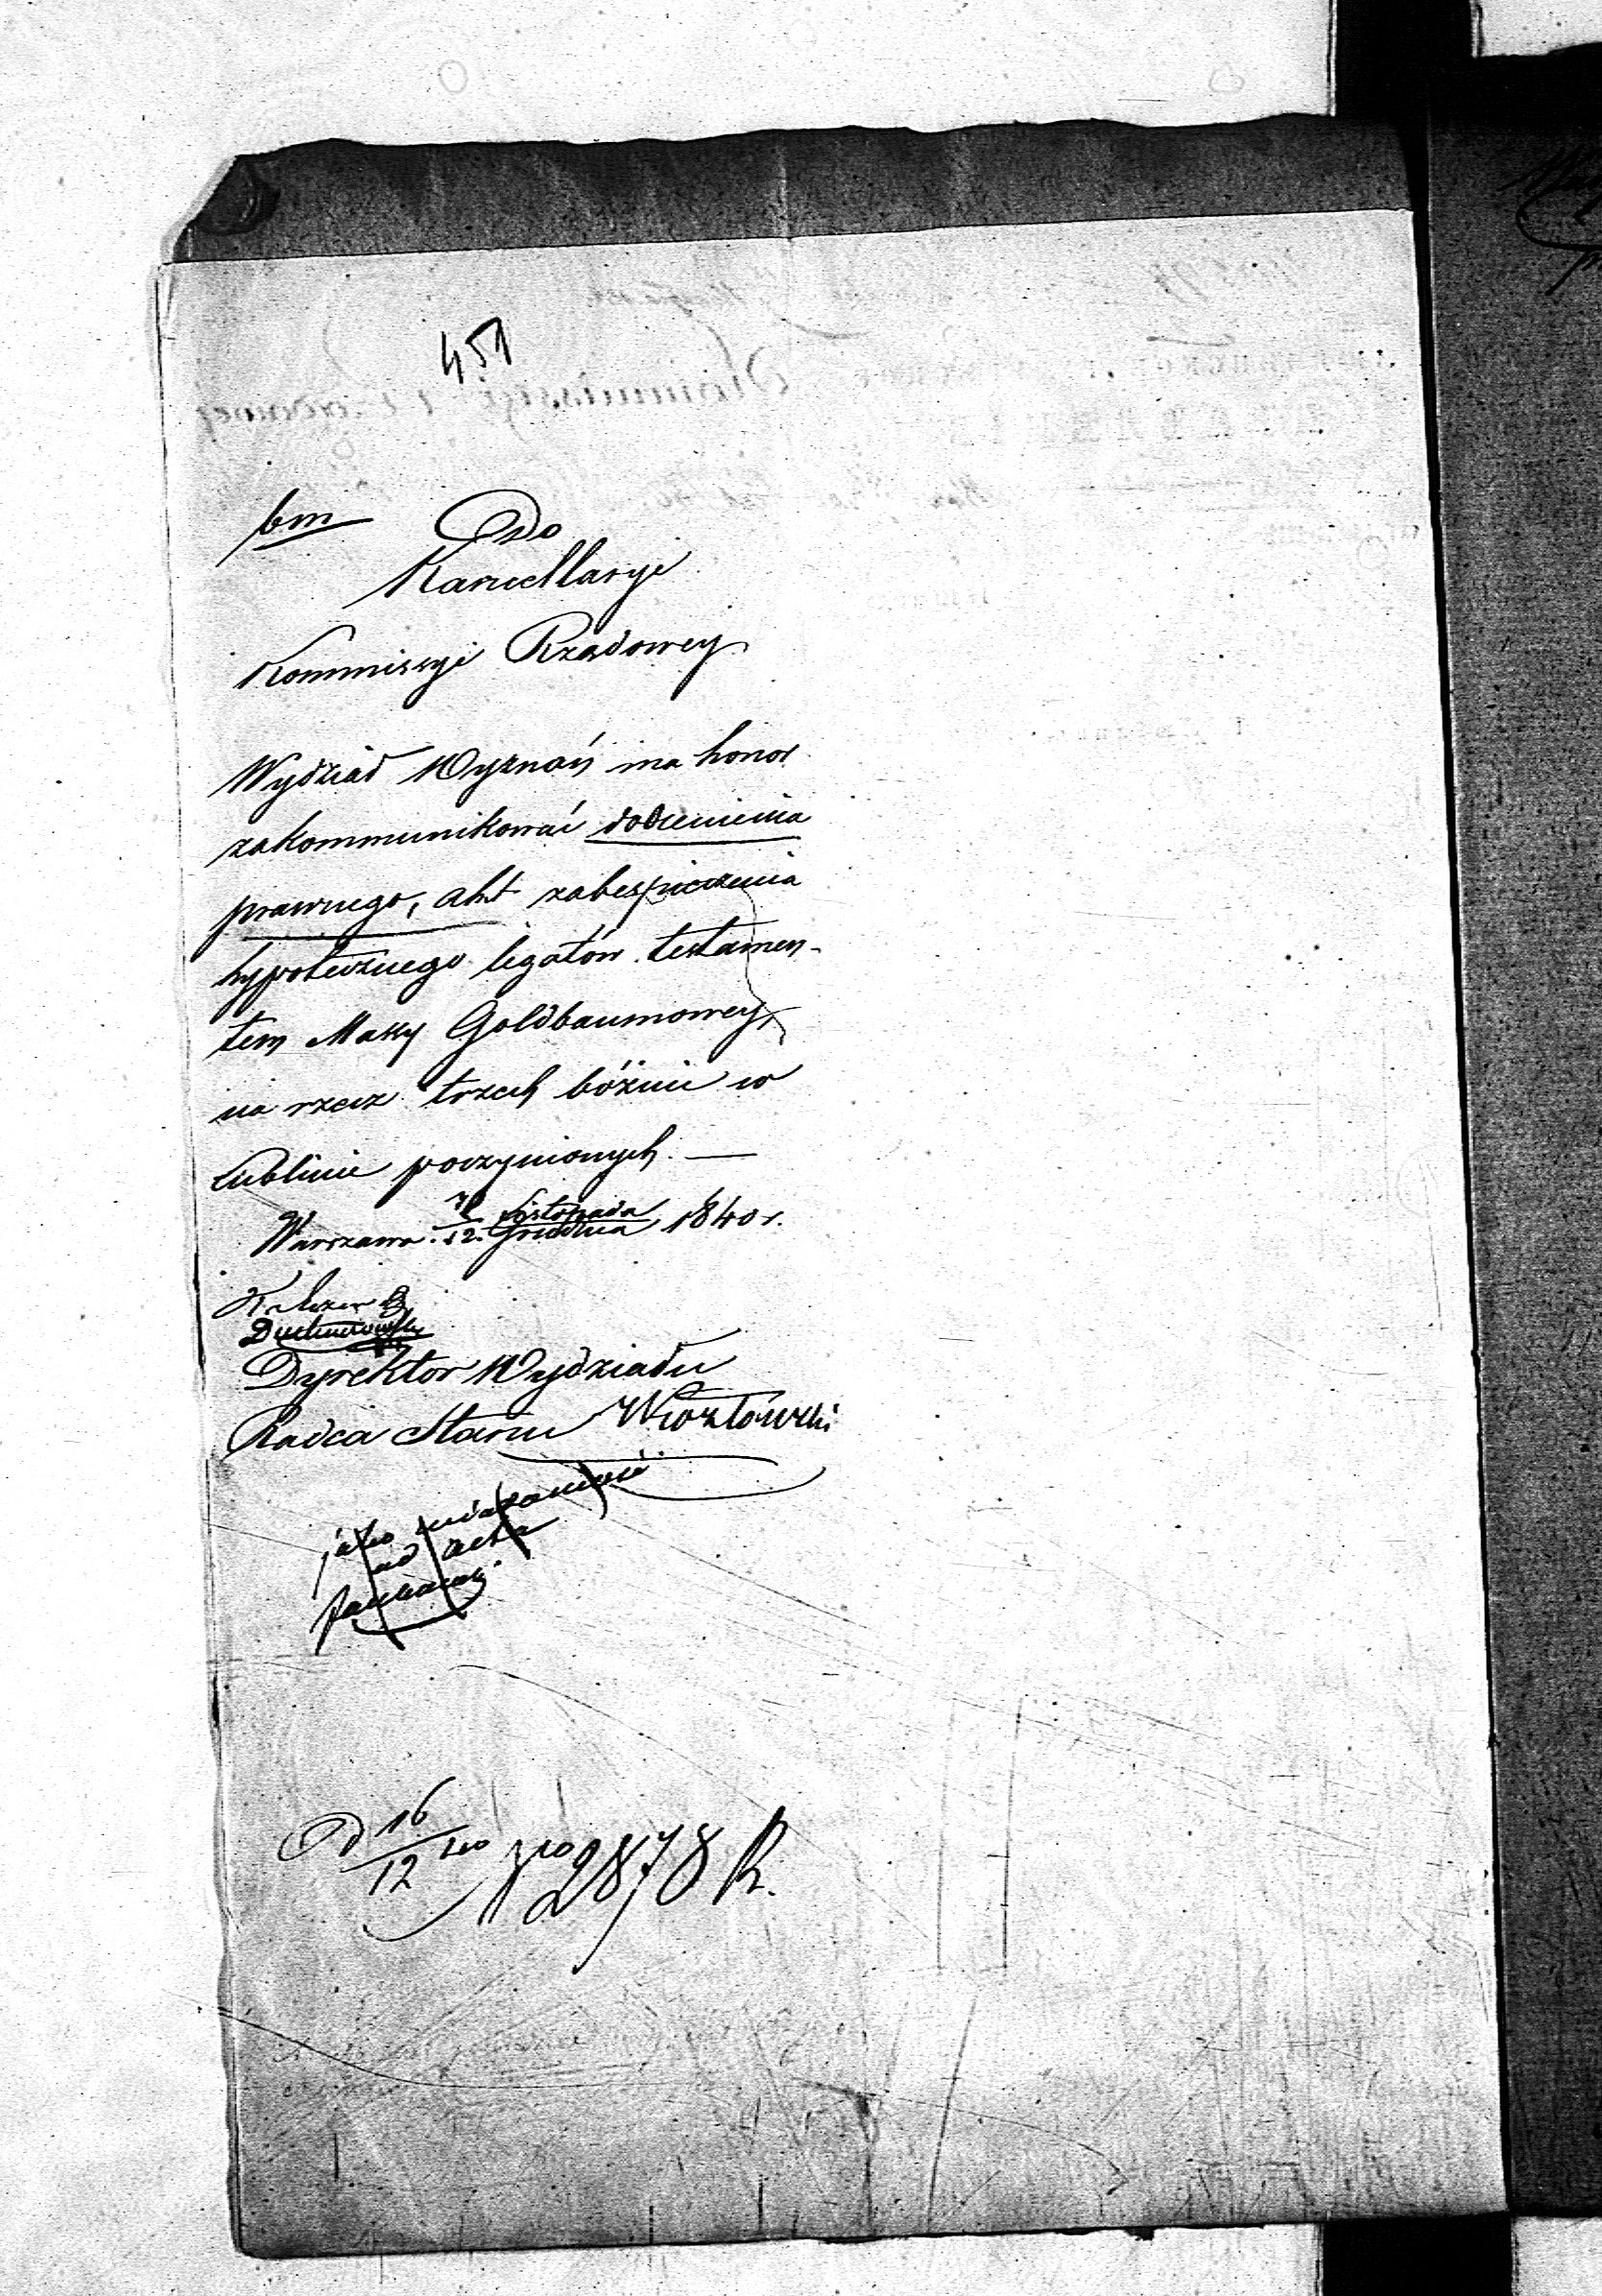 451
bm
Do
Kancellaryi
Kommissyi Rządowey
Wydział Wyznań ma honor
zakommunikować do ocenienia
prawnego, akt zabespieczenia
hypotecznego legatów testamen-
tem Maky Goldbaumowey,
na rzecz trzech bóżnic w
Lublinie poczynionych. —
Warszawa 30/12. Listopada/Grudnia 1840 r.
Dyrektor Wydziału
Radca Stanu Kozłowski
jako
ad acta
d 16/12 40 No 2878 R.